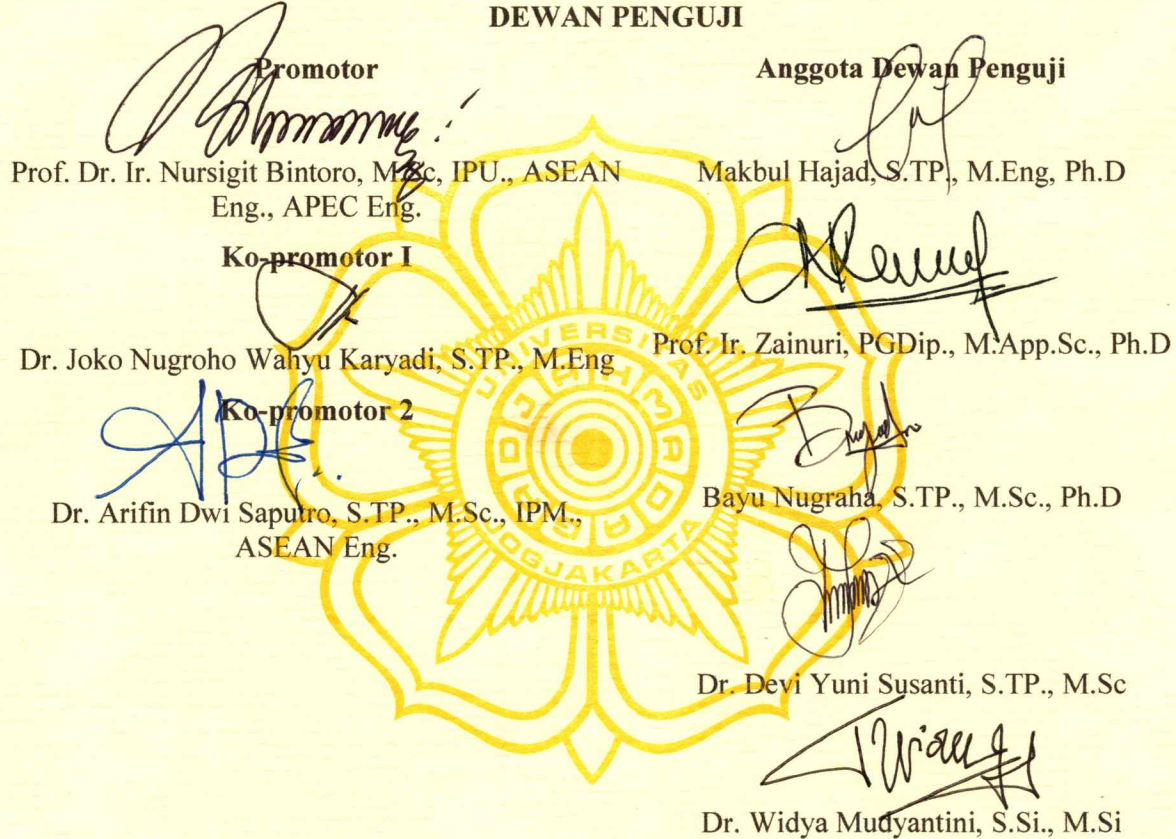 DEWAN PENGUJI
Promotor
Prof. Dr. Ir. Nursigit Bintoro, M.Sc, IPU., ASEAN
Eng., APEC Eng.
Ko-promotor I
Dr. Joko Nugroho Wahyu Karyadi, S.TP., M.Eng
Ko-promotor 2
Dr. Arifin Dwi Saputro, S.TP., M.Sc., IPM.,
ASEAN Eng.
Anggota Dewan Penguji
Makbul Hajad, S.TP., M.Eng, Ph.D
Prof. Ir. Zainuri, PGDip., M.App.Sc., Ph.D
Bayu Nugraha, S.TP., M.Sc., Ph.D
Dr. Devi Yuni Susanti, S.TP., M.Sc
Dr. Widya Mudyantini, S.Si., M.Si
UNIVERSITAS
GADJAH MADA
JOGJAKARTA